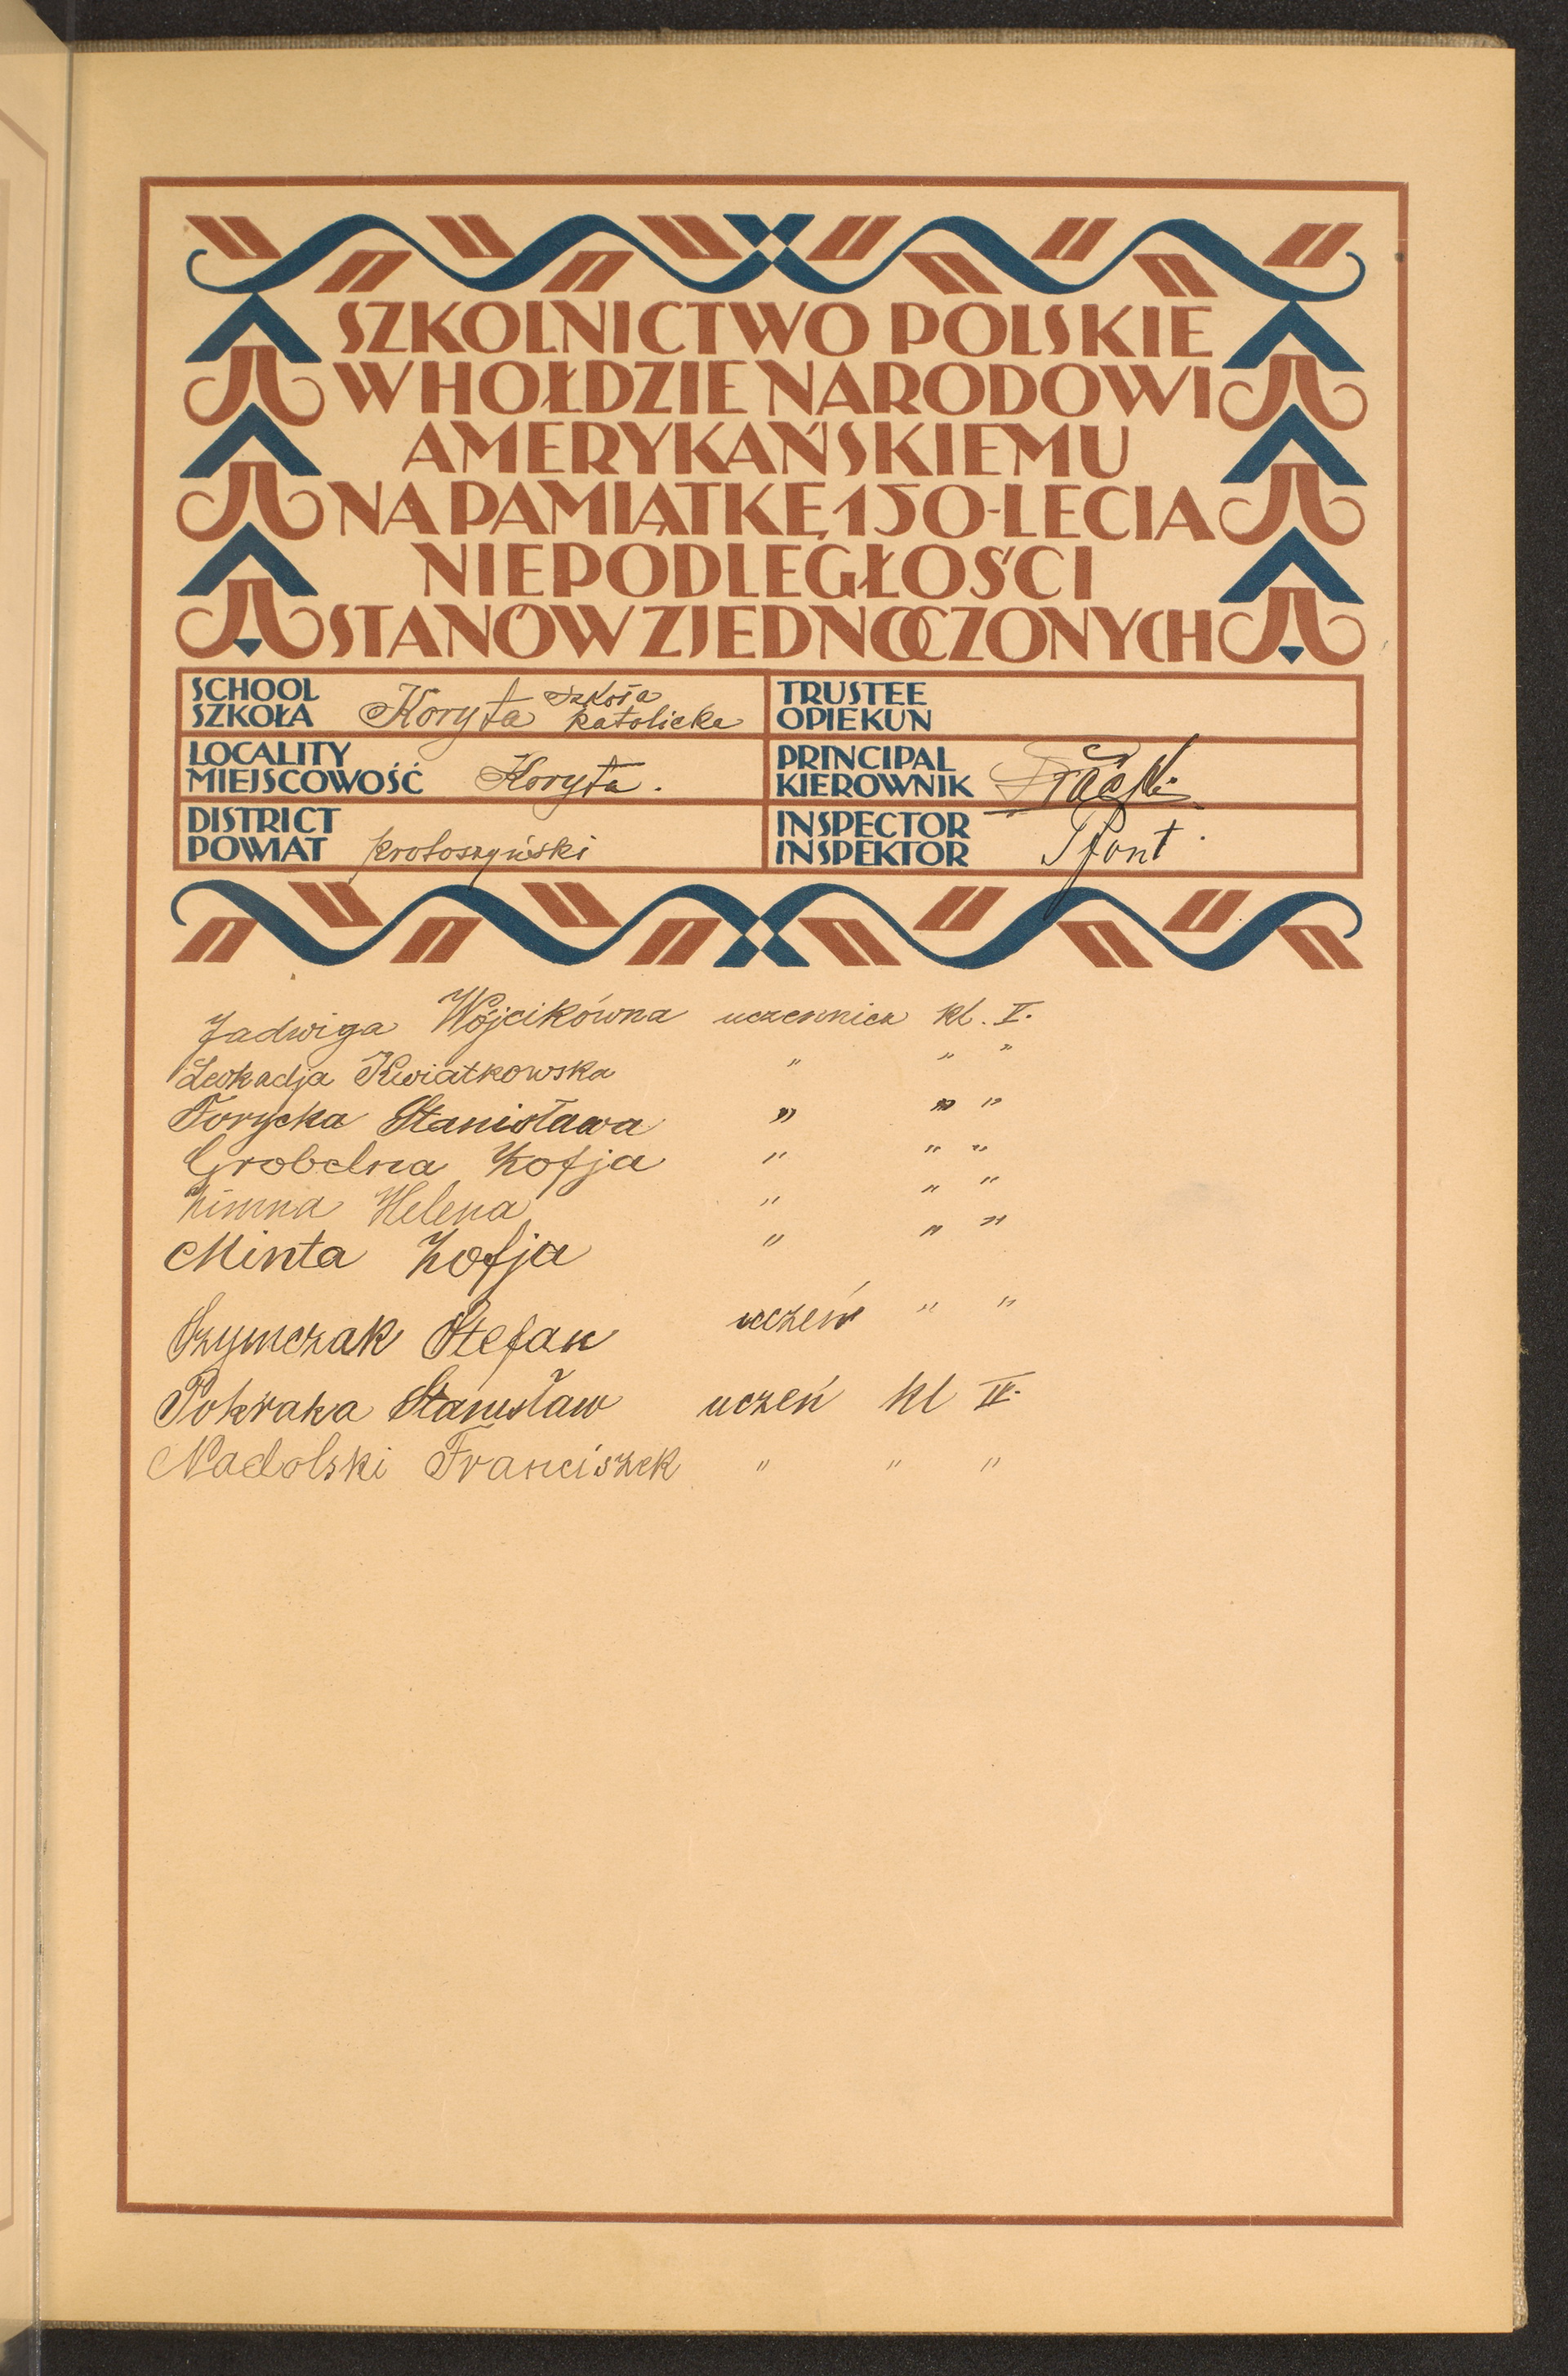 SZKOLNICTWO POLSKIE
W HOŁDZIE NARODOWI
AMERYKAŃSKIEMU
NA PAMIĄTKĘ 150-LECIA
NIEPODLEGŁOŚCI
STANÓW ZJEDNOCZONYCH
SCHOOL
SZKOŁA Koryta Szkoła katolicka
TRUSTEE
OPIEKUN
LOCALITY
MIEJSCOWOŚĆ Koryta.
PRINCIPAL
KIEROWNIK
DISTRICT
POWIAT krotoszyński
INSPECTOR
INSPEKTOR Pfont
Jadwiga Wójcikówna uczennica kl. V.
Leokadja Kwiatkowska " " "
Torycka Stanisława " " "
Grobelna Zofja " " "
Zimna Helena " " "
Minta Zofja " " "
Szymczak Stefan uczeń " "
Pokraka Stanisław uczeń kl IV.
Nadolski Franciszek " " "